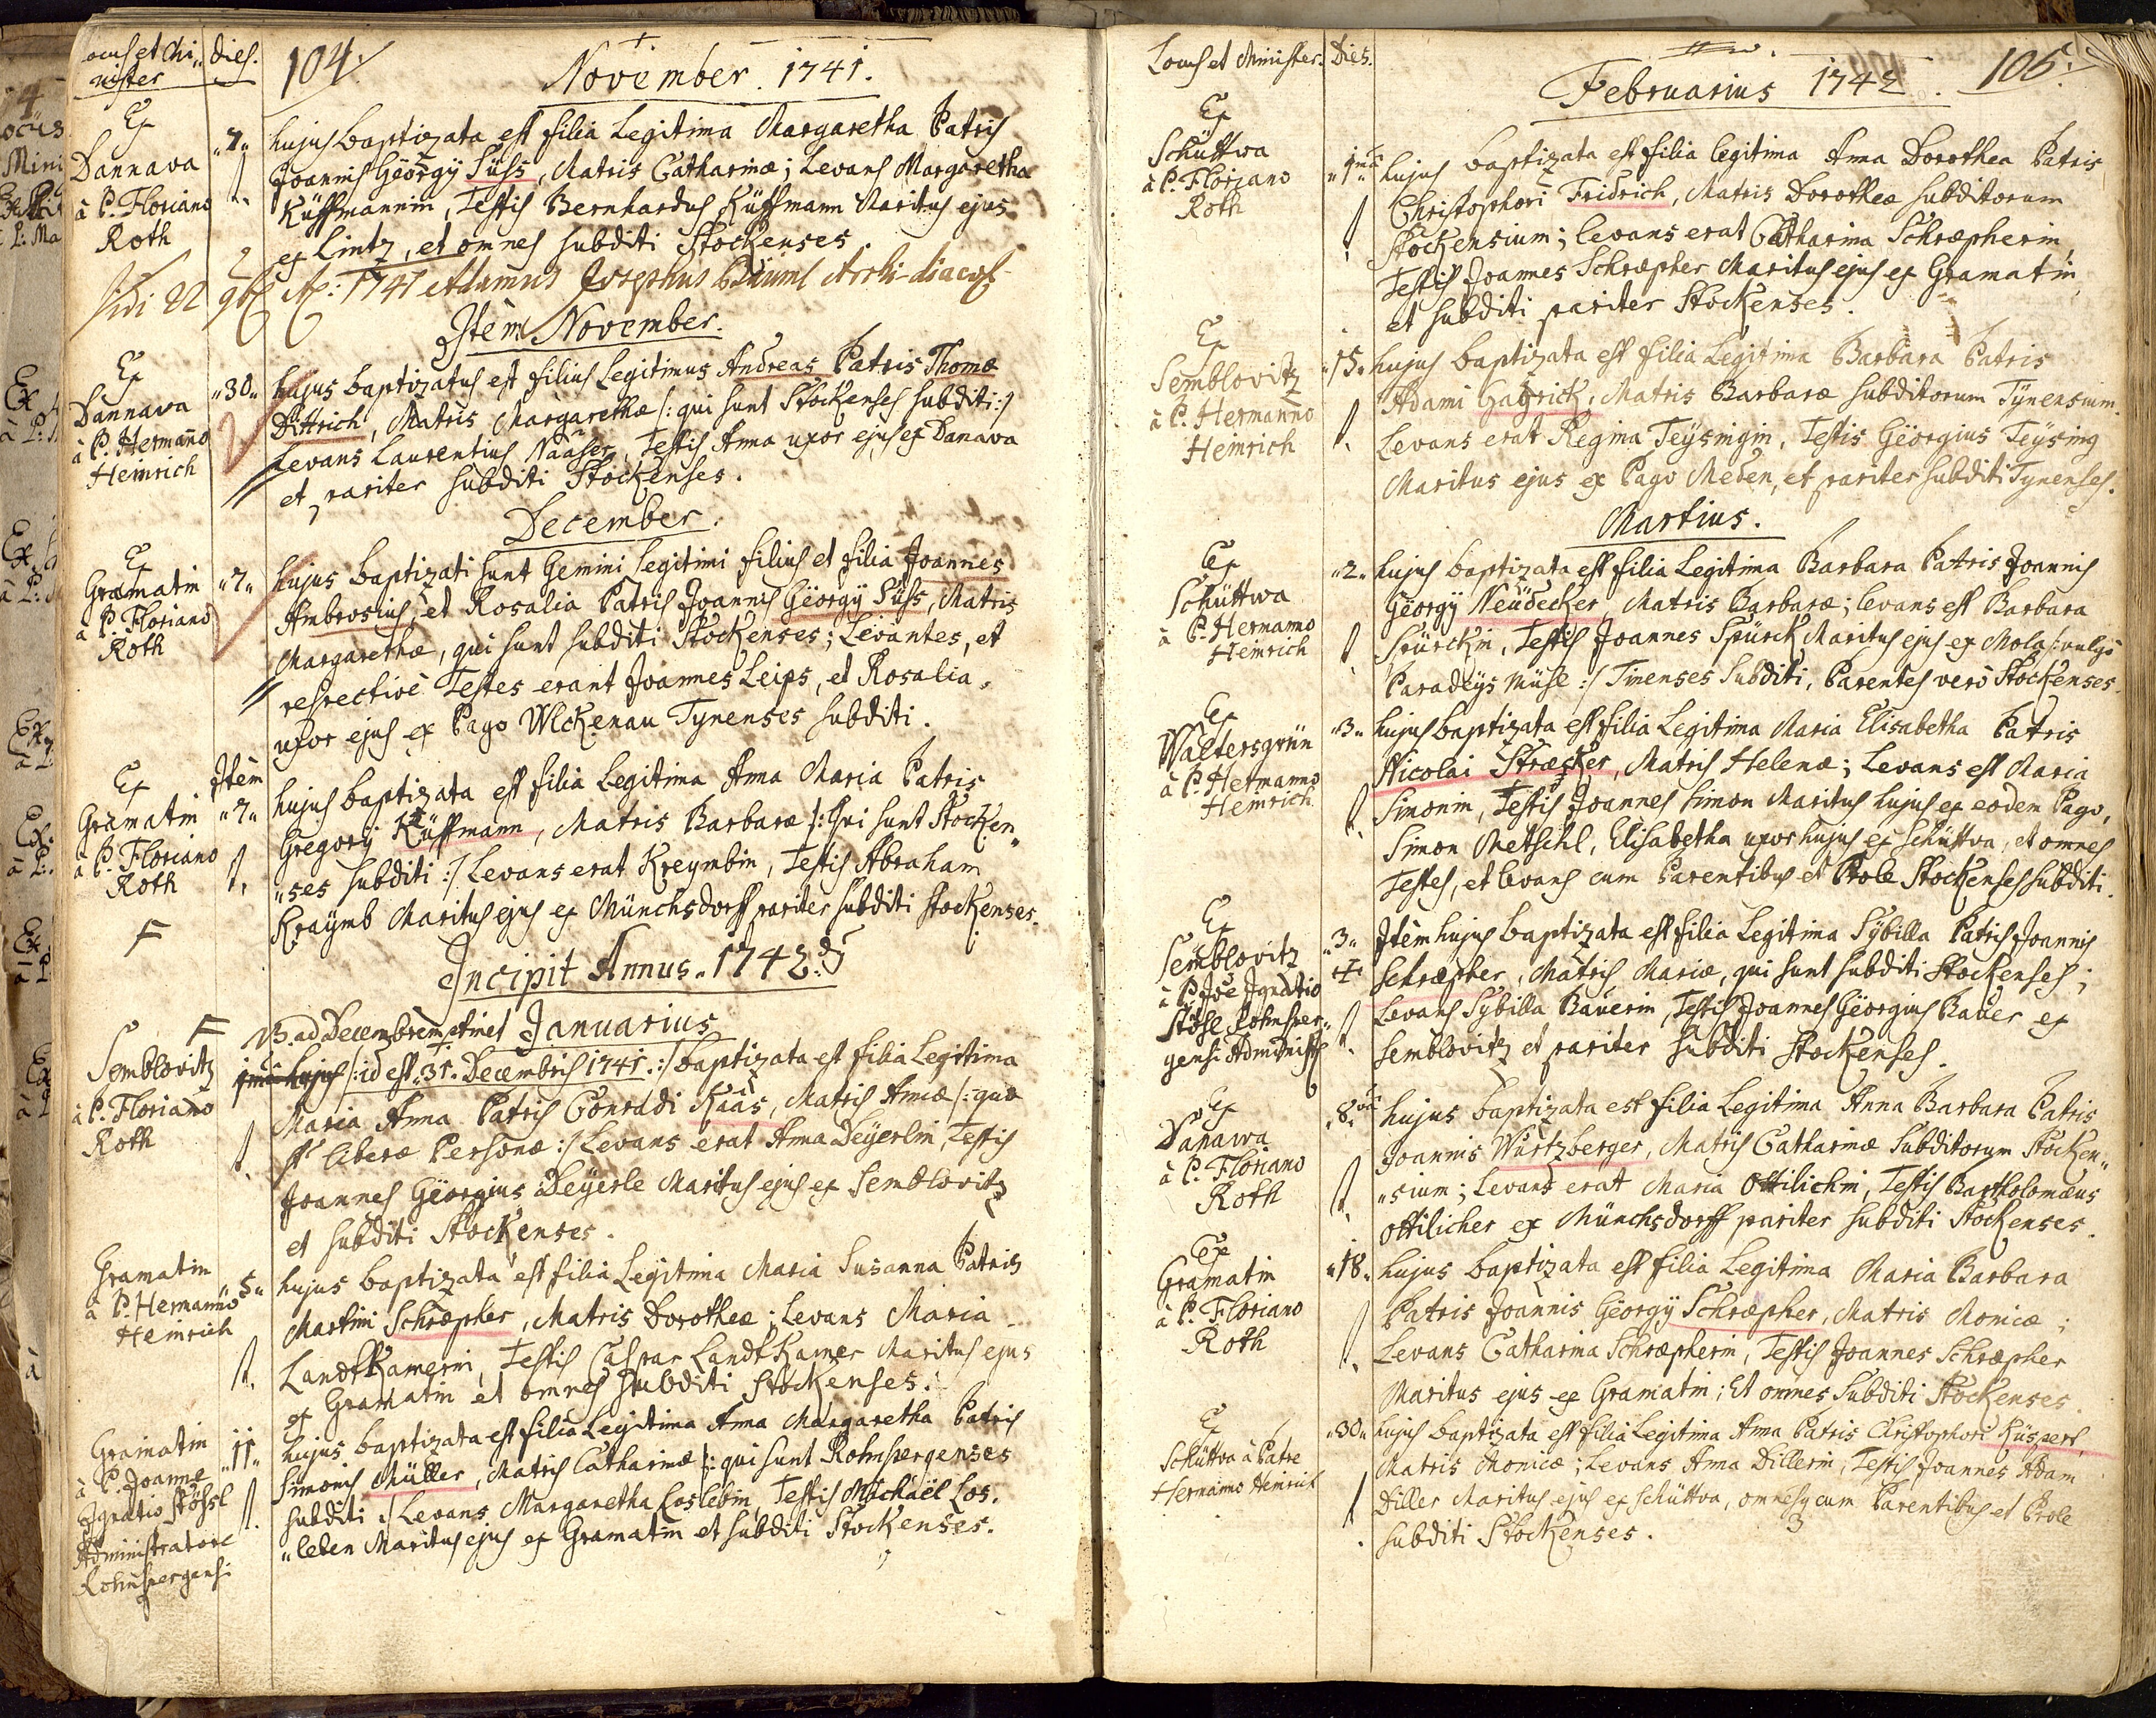 Locus et Mi„ Dies.
nister
104.
November. 1741.
Ex
Dannava
à P. Floriano
Roth
„7„ hujus baptizata est filia Legitima Margaretha Patris
Joannis Georgÿ Süss, Matris Catharinæ; Levans Margaretha
Küffmannin, Testis Bernhardus Küffmann Maritus ejus
ex Lintz, et omnes subditi Stockenses.
Vidi 22 9b A: 1741 Adamus Josephus Archi-diac
Item November.
Ex
Dannava
à P. Hermanno
Heinrich
„30„ hujus baptizatus est filius Legitimus Andreas Patris Thomæ
Dittrich, Matris Margarethæ /: qui sunt Stockenses subditi :/
Levans Laurentius Naaser, Testis Anna uxor ejus ex Danava
et pariter subditi Stockenses.
December.
Ex
Gramatin
à P. Floriano
Roth
„7„ hujus baptizati sunt Gemini Legitimi filius et filia Joannes
Ambrosius, et Rosalia Patris Joannis Georgÿ Süss, Matris
Margarethæ, qui sunt subditi Stockenses; Levantes, et
respectivè Testes erant Joannes Leips, et Rosalia
uxor ejus ex Pago Ulckenau Tynenses subditi.
Ex
Gramatin
à P. Floriano
Roth
Item
„7„ hujus baptizata est filia Legitima Anna Maria Patris
Gregorÿ Küffmann, Matris Barbaræ /: Qui sunt Stocken„
„ses subditi :/ Levans erat Kreymbin, Testis Abraham
Kraÿmb Maritus ejus ex Münchsdorff pariter subditi Stockenses.
F
Incipit Annus 1742.
F NB. ad Decembrem Januarius
Semblovitz
à P. Floriano
Roth
hujus /: id est 31. Decembris 1741 :/ baptizata est filia Legitima
Maria Anna Patris Conradi Kaas, Matris Annæ /: quæ
st liberæ Personæ :/ Levans erat Anna Deÿerlin, Testis
Joannes Georgius Deÿerle Maritus ejus ex Semblovitz
et subditi Stockenses.
Gramatin
à P. Hermanno
Heinrich
„5„ hujus baptizata est filia Legitima Maria Susanna Patris
Martini Schræpher, Matris Dorotheæ; Levans Maria
LandtKamerin, Testis Caspar LandtKamer Maritus ejus
ex Gramatin et omnes subditi Stockenses.
Gramatin
à P. Joanne
Ignatio Stössl
Administratore
Rohnspergensi
„11„ hujus baptizata est filia Legitima Anna Margaretha Patris
Simonis Müller, Matris Catharinæ /: qui sunt Rohnspergenses
subditi :/ Levans Margaretha Loslebin, Testis Michaël Los„
„leben Maritus ejus ex Gramatin et subditi Stockenses.
Locus et Minister. Dies.
105.
Februarius 1742.
Ex
Schüttwa
à P. Floriano
Roth
„1ma„ hujus baptizata est filia legitima Anna Dorothea Patris
Christophori Fridrich, Matris Dorotheæ subditorum
Stockensium; levans erat Catharina Schræpherin,
Testis Joannes Schræpher Maritus ejus ex Gramatin,
et subditi pariter Stockenses.
Ex
Semblovitz
à P. Hermanno
Heinrich
„15„ hujus baptizata est filia Legitima Barbara Patris
Adami Gabrick, Matris Barbaræ subditorum Tynensium.
Levans erat Regina Teÿsingin, Testis Georgius Teÿsing
Maritus ejus ex Pago Meden, et pariter subditi Tynenses.
Martius.
Ex
Schüttwa
à P. Hermanno
Heinrich
„2„ hujus baptizata est filia Legitima Barbara Patris Joannis
Georgÿ Neüdecker, Matris Barbaræ; levans est Barbara
Spürckin, Testis Joannes Spürck Maritus ejus ex Mola /: vulgo
Paradeÿs Mühl :/ Tinenses Subditi, Parentes verò Stockenses.
Ex
Waltersgrün
à P. Hermanno
Heinrich
„3„ hujus baptizata est filia Legitima Maria Elisabetha Patris
Nicolai Strœsker, Matris Helenæ; Levans est Maria
Simonin, Testis Joannes Simon Maritus hujus ex eodem Pago,
Simon Metschl, Elisabetha uxor hujus ex Schüttva, et omnes
Testes, et levans cum Parentibus et Prole Stockenses subditi.
Ex
Semblovitz
à P. Joe Ignatio
Stössl Rohnsper„
gensi Administr
„3„ Item hujus baptizata est filia Legitima Sÿbilla Patris Joannis
Schræpher, Matris Mariæ, qui sunt subditi Stockenses;
Levans Sÿbilla Bauerin, Testis Joannes Georgius Bauer ex
Semblovitz et pariter subditi Stockenses.
Ex
Danawa
à P. Floriano
Roth
„8va„ hujus baptizata est filia Legitima Anna Barbara Patris
Joannis Würtzberger, Matris Catharinæ Subditorum Stocken„
„sium; Levans erat Maria Ottilichin, Testis Bartholomæus
Ottilicher ex Münchsdorff pariter subditi Stockenses.
Ex
Gramatin
à P. Floriano
Roth
„18„ hujus baptizata est filia Legitima Maria Barbara
Patris Joannis Georgÿ Schræpher, Matris Monicæ;
Levans Catharina Schræpherin, Testis Joannes Schræpher
Maritus ejus ex Gramatin; Et omnes Subditi Stockenses.
Ex
Schüttva à Patre
Hermanno Heinrich
„30„ hujus baptizata est filia Legitima Anna Patris Christophori Küspert,
Matris Monicæ; Levans Anna Dillerin, Testis Joannes Adam
Diller Maritus ejus ex Schüttva, omnesq cum Parentibus et Prole
subditi Stockenses.